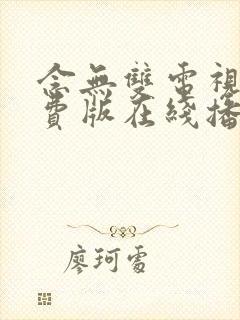 念無雙電視
費版在綫播
廖珂雪